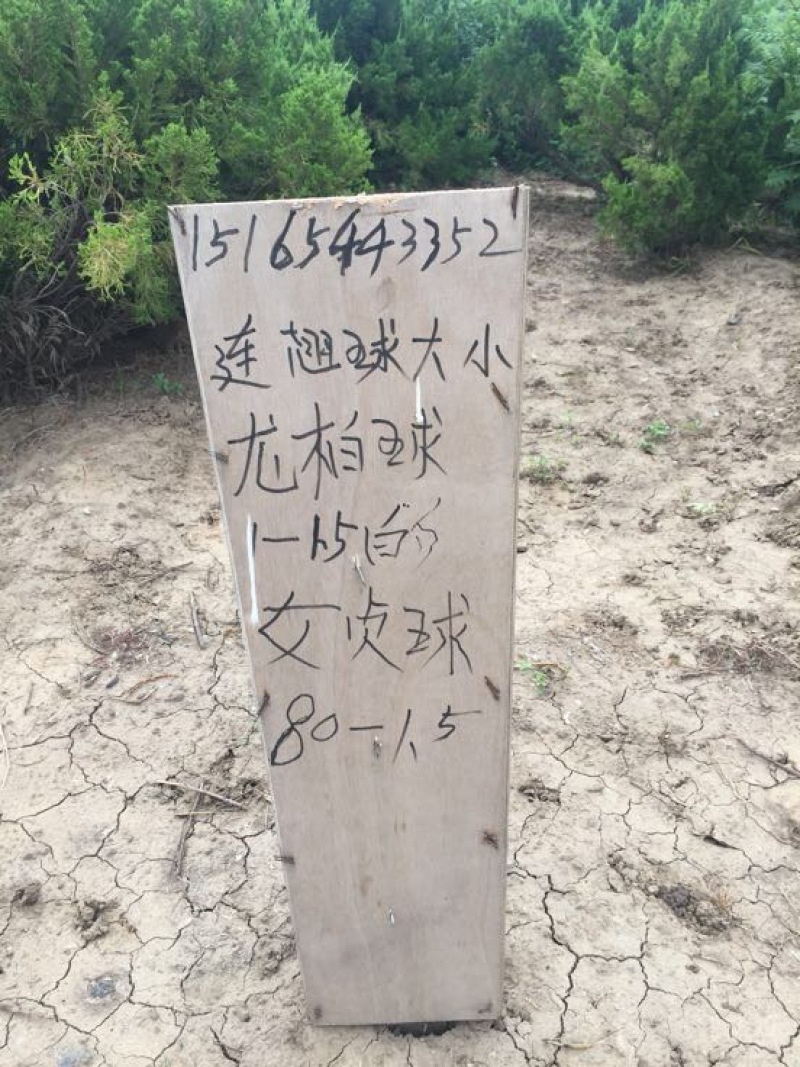 15165443352
连翘球大小
龙柏球
1-1.5的
女贞球
80-1.5